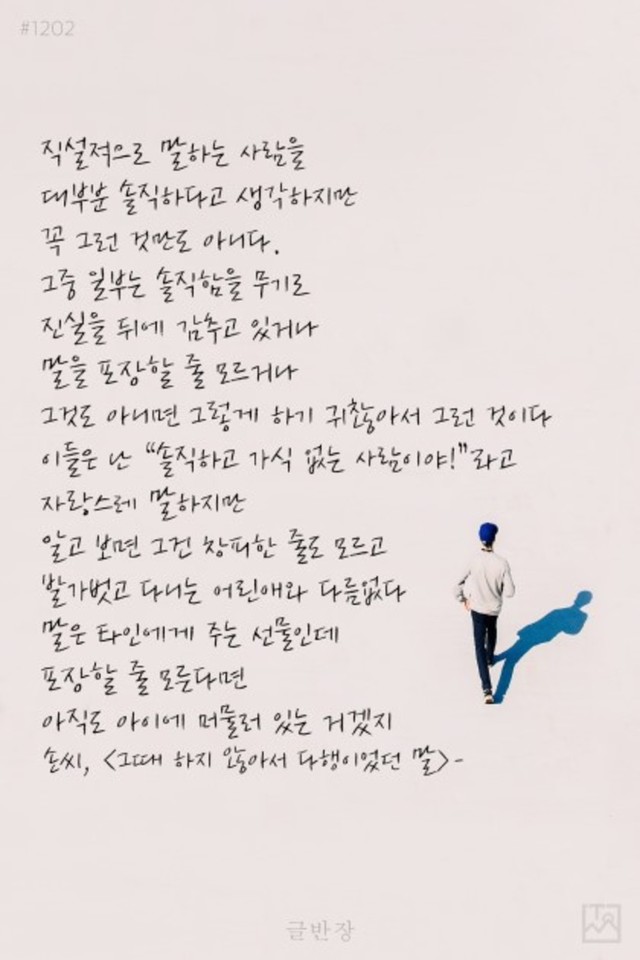 #1202
직설적으로 말하는 사람을
대부분 솔직하다고 생각하지만
꼭 그런 것만도 아니다.
그중 일부는 솔직함을 무기로
진실을 뒤에 감추고 있거나
말을 포장할 줄 모르거나
그것도 아니면 그렇게 하기 귀찮아서 그런 것이다
이들은 난 “솔직하고 가식 없는 사람이야!”라고
자랑스레 말하지만
알고 보면 그건 창피한 줄도 모르고
발가벗고 다니는 어린애와 다름없다
말은 타인에게 주는 선물인데
포장할 줄 모른다면
아직도 아이에 머물러 있는 거겠지
손씨, <그때 하지 않아서 다행이었던 말>-
글반장